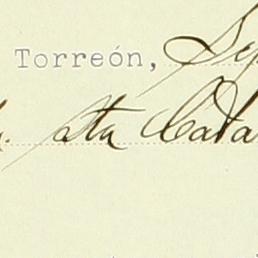 Torreón, Se
Sta Cata